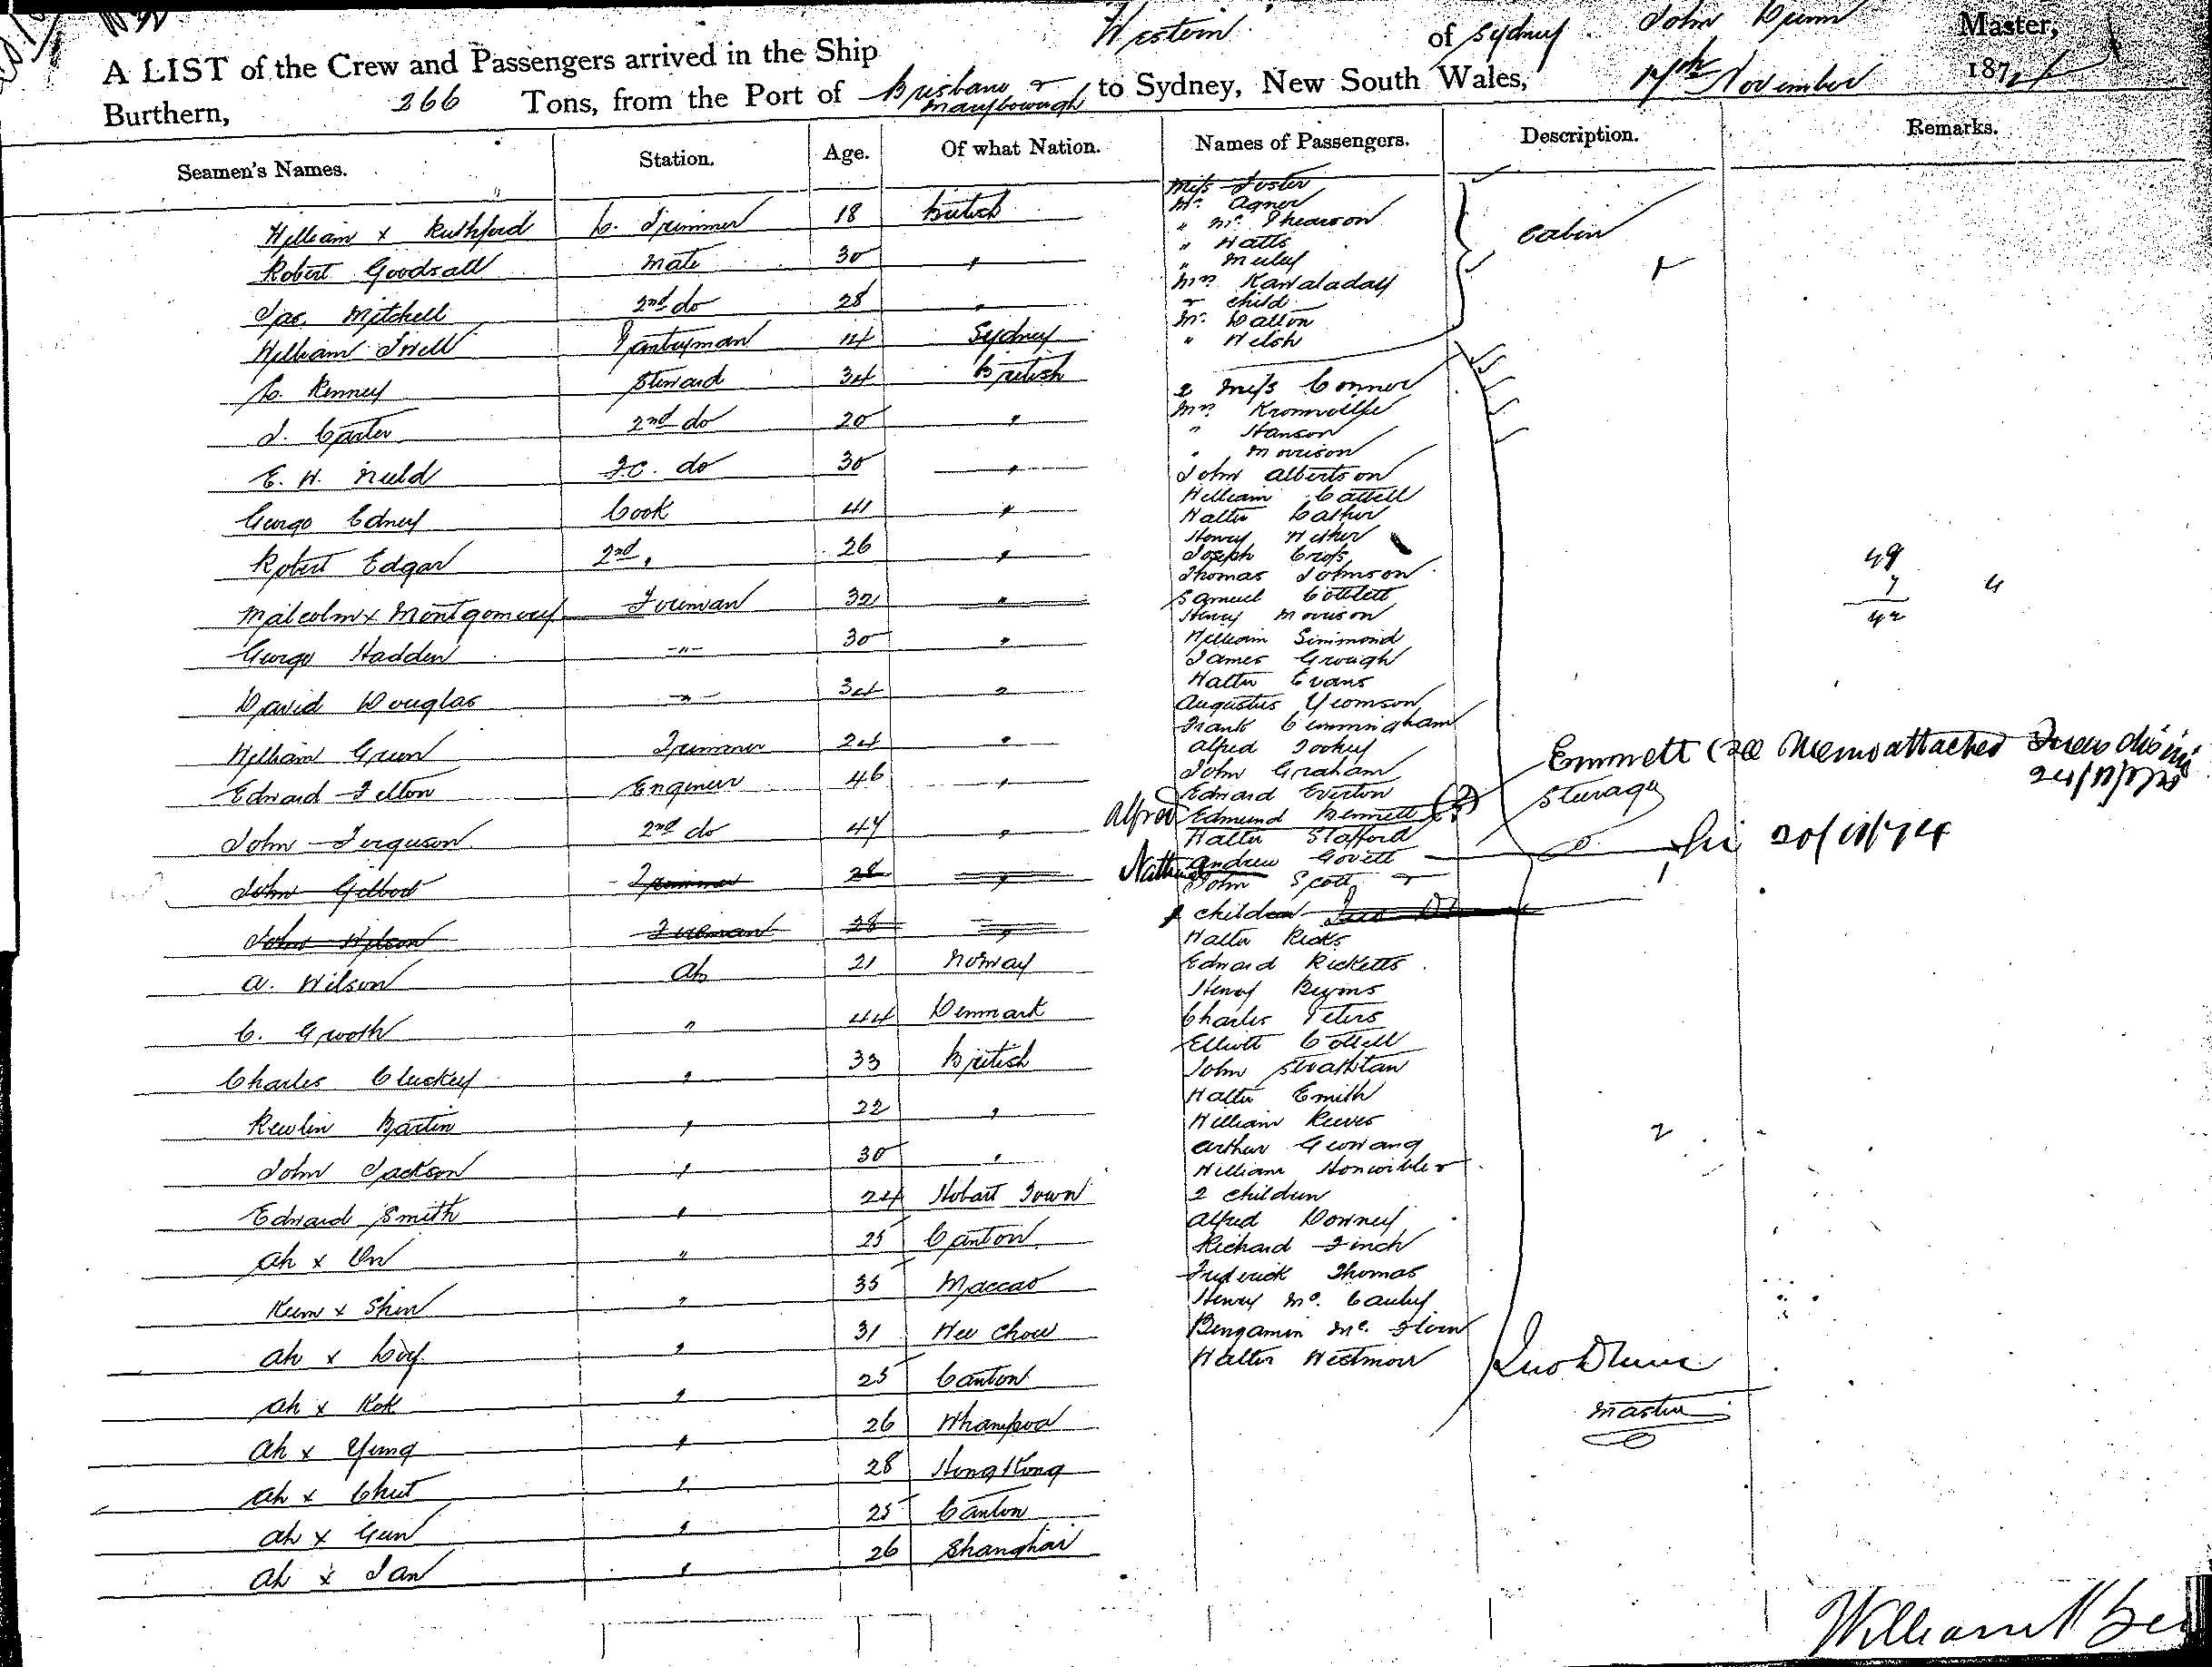 Western of Sydney John Dunn Master,
A LIST of the Crew and Passengers arrived in the Ship
Burthern, 266 Tons, from the Port of Brisbane & Maryborough to Sydney, New South Wales, 17th November 1874
Seamen's Names. Station. Age. Of what Nation. Names of Passengers. Description. Remarks.
William x Rushford C. Trimmer 18 British
Robert Goodsall Mate 30 "
Jas. Mitchell 2nd do 28 "
William Swell Pantryman 14 Sydney
C. Kenney Steward 34 British
J. Carter 2nd do 20 "
E. W. Neild F.C. do 30 "
George Edney Cook 41 "
Robert Edgar 2nd " 26 "
Malcolm x Montgomery Fireman 32 "
George Hadden " 30 "
David Douglas " 34 "
William Green Trimmer 24 "
Edward Felton Engineer 46 "
John Ferguson 2nd do 47 "
John Gilbod Trimmer 28 "
John Wilson Fireman 28 "
A. Wilson AB 21 Norway
C. Grooth " 44 Denmark
Charles Cluckey " 33 British
Rewlin Bartin " 22 "
John Jackson " 30 "
Edward Smith " 24 Hobart Town
Ah x On " 25 Canton
Keem x Shin " 35 Maccao
Ah x Coy " 31 Wee Chow
Ah x Kok " 25 Canton
Ah x Yung " 26 Whampoa
Ah x Chut " 28 Hong Kong
Ah x Gun " 25 Canton
Ah x Tan " 26 Shanghai
Miss Foster
Mr. Agnew
" Mc. Phearson
" Watts
" Meley
Mrs. Kawaladay
& child
Mr. Dalton
" Welsh
Cabin
2 Miss Connor
Mrs. Kromvolfe
" Hanson
" Morrison
John Albertson
William Cattell
Walter Casher
Henry Wether
Joseph Cross
Thomas Johnson
Samuel Cottlett
Henry Morrison
William Simmond
James Grough
Walter Evans
Augustus Yeomson
Frank Cunningham
Alfred Tookey
John Graham
Edward Everton
Alfred Edmund Bennett (?) Emmett (see Memo attached
Steerage
Walter Stafford
Andrew Govett
Nath John Scott &
1 children
Walter Ricks
Edward Ricketts
Henry Begins
Charles Peters
Elliott Cottell
John Strathtan
Walter Smith
William Reeves
Arthur Gowang
William Honwibler
2 Children
Alfred Downey
Richard Finch
Frederick Thomas
Henry Mc. Cauley
Benjamin Mc. Stern
Walter Westmorr
49
7 4
42
24/11/74
20/11/74
2
Jno Dunn
Master
William